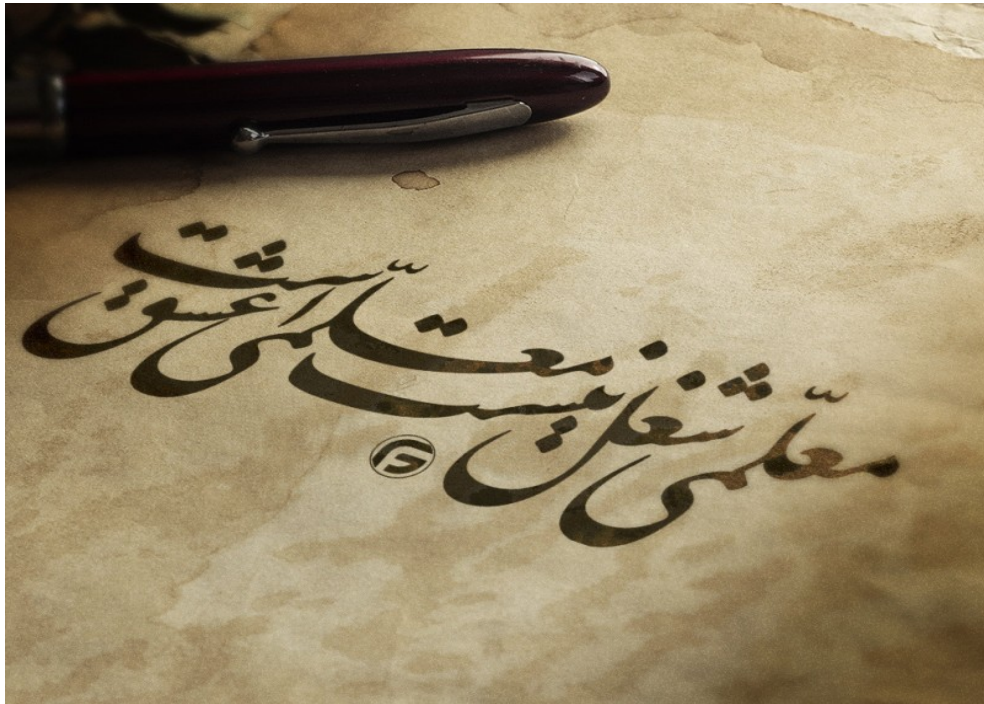 معلّمی شغل نیست معلّمی عشق است